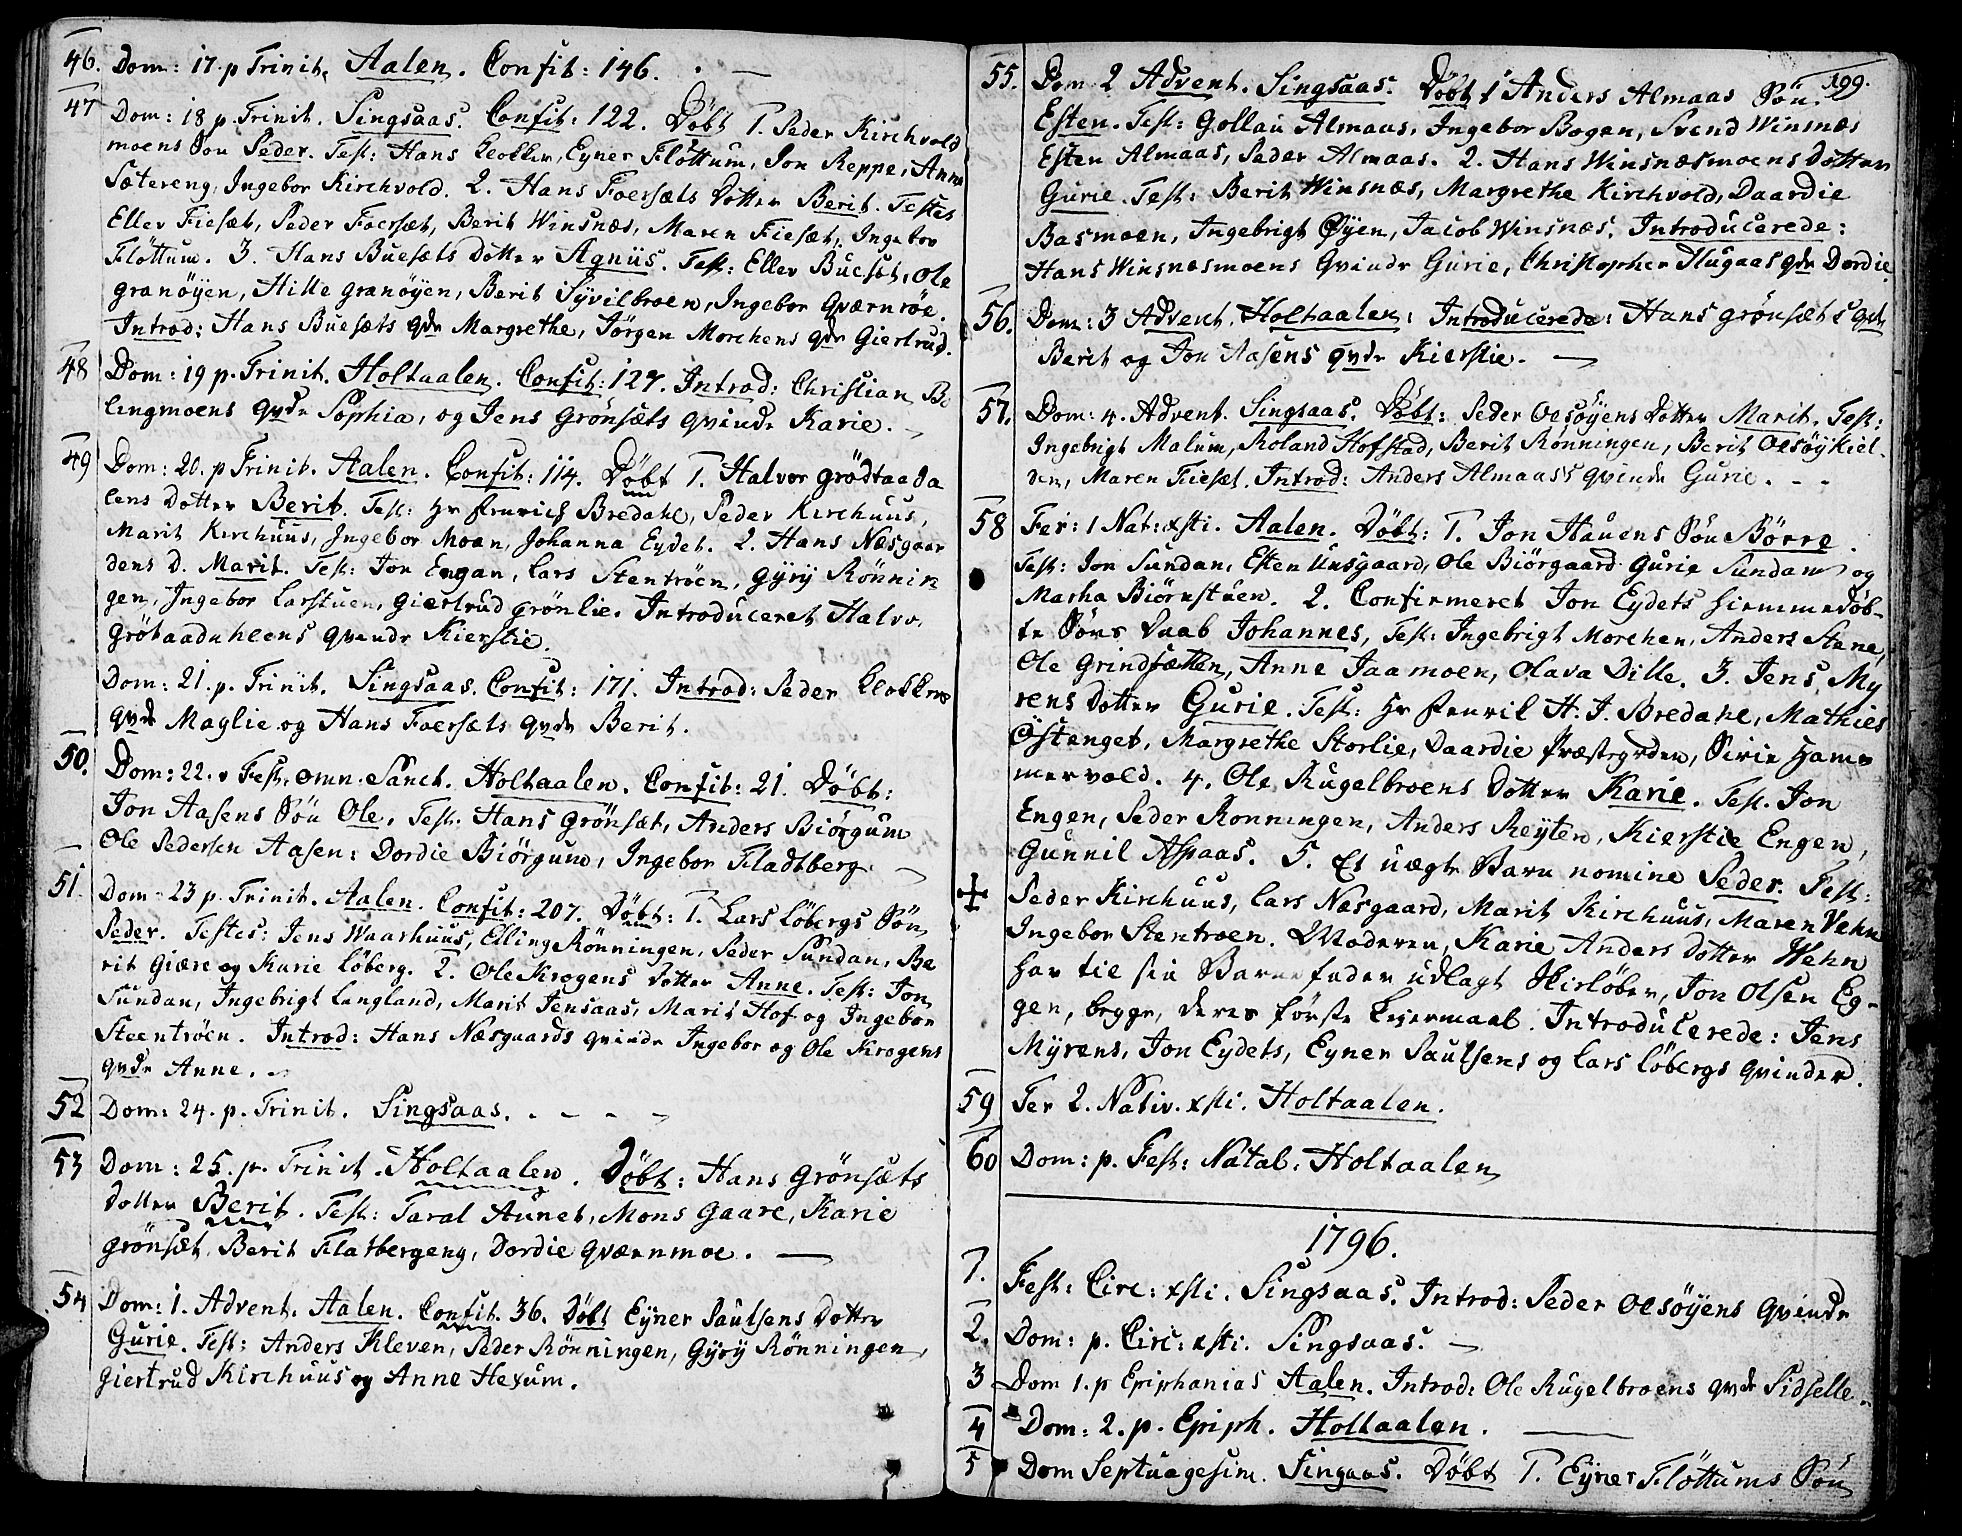 46. Dom: 17. p Trinit. Aalen. Confit: 146.
47 Dom: 18 p. Trinit. Singsaas. Confit: 122. Döbt 1. Peder Kirchvold
moens Sön Peder. Test: Hans Klokker, Eyner Flöttum, Jon Reppe, Anne
Sætereng, Ingebor Kirchvold. 2. Hans Foersæts Dotter Berit. Testes
Eller Fiesæt, Peder Foersæt, Berit Winsnæs, Maren Fiesæt, Ingebor
Flöttum. 3. Hans Buesæts Dotter Agnüs. Test: Eller Buesæt, Ole
granöyen, Hille granöyen, Berit Syvilbroen, Ingebor Qværnröe.
Introd: Hans Buesæts qvde Margrethe, Jörgen Morchens qvde Giertrud.
48 Dom: 19 p. Trinit. Holtaalen. Confit: 127. Introd: Christian Be
lingmoens qvde Sophia, og Jens Grönsæts qvinde Karie.
49 Dom: 20. p Trinit. Aalen. Confit: 114. Döbt 1. Halvor Grödtaada
lens Dotter Berit. Test: Hr Henrich Bredahl, Peder Kirchuus,
Marit Kirchuus, Ingebor Moan, Johanna Eydet. 2. Hans Næsgaar
dens D. Marit. Test: Jon Engan, Lars Stentröen, Gyry Rönnin
gen, Ingebor Larstuen, Giertrud Grönlie. Introduceret Halvo.
Grötaadahlens qvinde Kierstie.
Dom: 21. p. Trinit. Singsaas. Confit: 171. Introd: Peder Klokkers
qvde Maglie og Hans Foersæts qvde Berit.
50. Dom: 22. & Fest. omn. Sanct. Holtaalen. Confit: 21. Döbt:
Jon Aasens Sön Ole, Test: Hans Grönsæt, Anders Biörgum
Ole Pedersen Aasen: Dordie Biörgum, Ingebor Fladtberg.
51. Dom: 23 p. Trinit. Aalen. Confit: 207. Döbt: 1. Lars Löbergs Sön
Peder. Testes: Jens Waarhuus, Elling Rönningen, Peder Sundan, Be
rit Giære og Karie Löberg. 2. Ole Krogens Dotter Anne. Test: Jon
Sundan, Ingebrigt Langland, Marit Jensaas, Marit Hof og Ingebor
Steentröen. Introd: Hans Næsgaards qvinde Ingebor og Ole Krogens
qvde Anne.
52 Dom: 24. p. Trinit. Singsaas.
53 Dom: 25. p. Trinit. Holtaalen. Döbt: Hans Grönsæts
Dotter Berit. Test: Taral Aunet, Mons Gaare, Karie
Grönsæt, Berit Flatbergeng, Dordie Qværnmoe.
54 Dom: 1. Advent. Aalen. Confit. 36. Döbt Eyner Paulsens Dotter
Gurie. Test: Anders Kleven, Peder Rönningen, Gyry Rönningen,
Giertrud Kirchuus og Anne Hexum.
199.
55. Dom 2 Advent. Singsaas. Döbt 1 Anders Almaas Sön
Esten. Test: Gollau Almaas, Ingebor Bogen, Svend Winsnæs
Esten Almaas, Peder Almaas. 2. Hans Winsnæsmoens Dotter
Gurie. Test: Berit Winsnæs, Margrethe Kirchvold, Daardie
Basmoen, Ingebrigt Öyen, Jacob Winsnæs. Introducerede:
Hans Winsnæsmoens Qvinde Gurie, Christopher Hugaas qde Dordie.
56. Dom: 3 Advent. Holtaalen: Introducerede: Hans Grönsæts qvde
Berit og Jon Aasens qvde Kierstie.
57. Dom: 4. Advent. Singsaas. Döbt: Peder Oesöyens Dotter Marit. Test:
Ingebrigt Malum, Roland Hofstad, Berit Rönningen, Berit Oesöykiel-
den, Maren Fiesæt. Introd: Anders Almaass qvinde Gurie.
58 Fer: 1 Nat: xsti. Aalen. Döbt: 1. Jon Hauens Sön Börre.
Test: Jon Sundan, Esten Unsgaard, Ole Biörgaard Gurie Sundan og
Marha Biörnstuen. 2. Confirmeret Jon Eydets hiemmedöb-
te Söns Daab Johannes, Test: Ingebrigt Morchen, Anders Stene,
Ole Grindsætten, Anne Jaamoen, Olava Dille. 3. Jens My
rens Dotter Gurie. Test: Hr H: J. Bredahl, Mathies
Östenget, Margrethe Storlie, Daardie Præstegrden, Sirie Ham
mervold. 4. Ole Rugelbroens Dotter Karie. Test. Jon
Engen, Peder Ronningen, Anders Reyten, Kierstie Engen,
Gunnil Aspaas. 5. Et uægte Barn nomine Peder. Test:
Peder Kirchuus, Lars Næsgaard, Marit Kirchuus, Maren Vehn
Ingebor Stentroen. Moderen, Karie Anders Dotter Wehn
har til sin Barnefader udlagt Skirlöber, Jon Olsen Eg-
gen, begge, deres förste Leiermaal. Introducerede: Jens
Myrens, Jon Eydets, Eyner Paulsens og Lars Löbergs qvinder.
59 Fer 2. Nativ. xsti. Holtaalen.
60 Dom: p. Fest: Natal. Holtaalen
1796.
1. Fest: Circ: xsti. Singsaas. Introd: Peder Oesöyens qvinde
2. Dom: p. Circ: xsti. Singsaas.
3 Dom 1. p Epiphanias Aalen. Introd: Ole Rugelbroens qvde Sidselle.
4 Dom: 2. p. Epiph. Holtaalen.
5 Dom Septuagesim. Singsaas. Döbt 1. Eyner Flöttums Sön